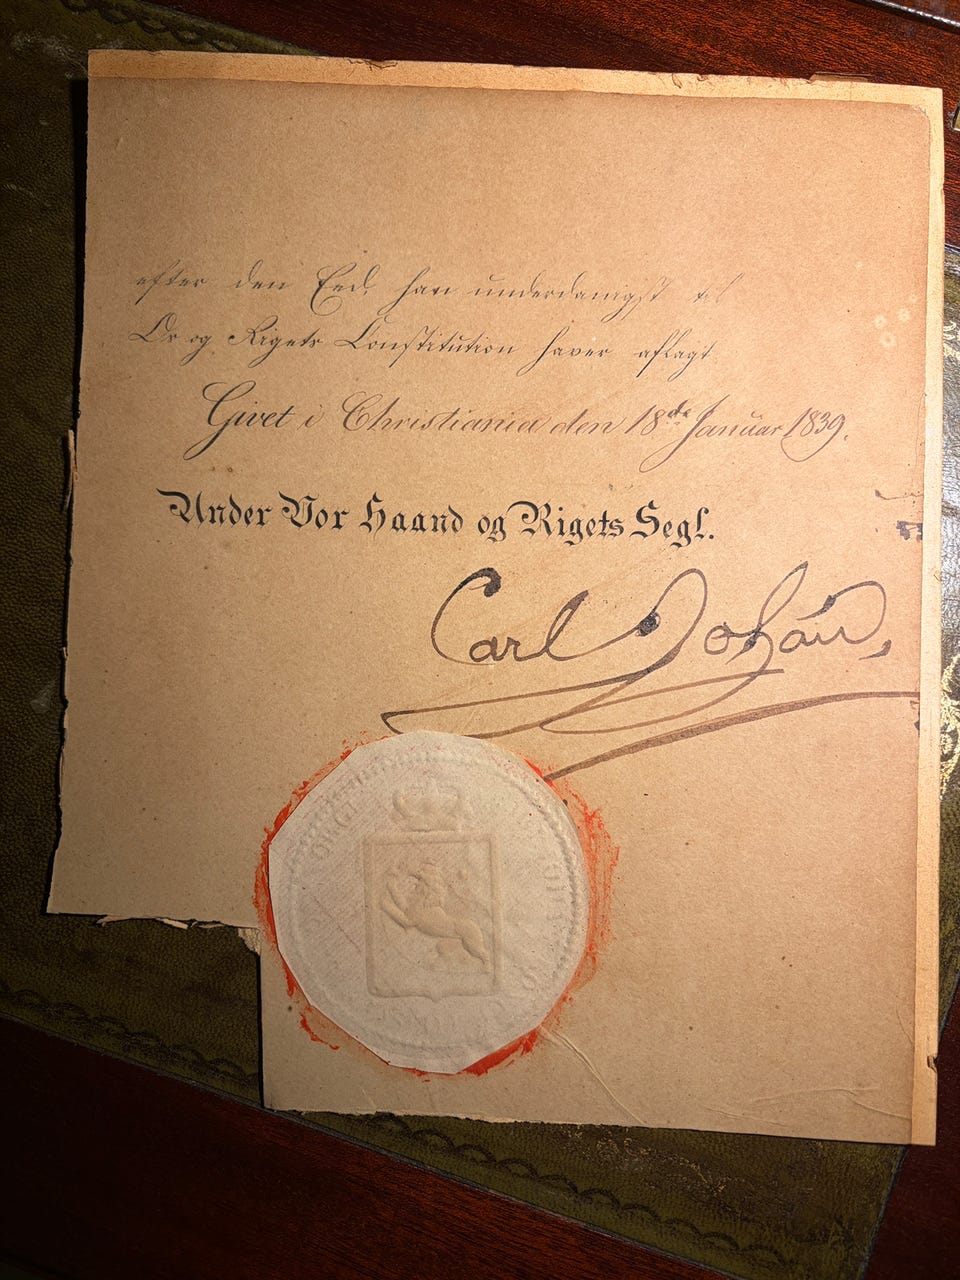 efter den Eed, han underdanigst til
Os og Rigets Constitution haver aflagt
Givet i Christiania den 18de Januar 1839.
Under Vor Haand og Rigets Segl.
Carl Johan